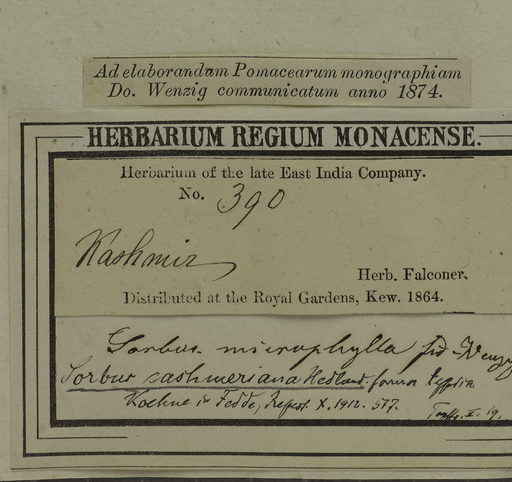 Ad elaborandam Pomacearum monographiam
Do. Wenzig communicatum anno 1874.
HERBARIUM REGIUM MONACENSE.
Herbarium of the late East India Company.
No. 390
Kashmir
Herb. Falconer.
Distributed at the Royal Gardens, Kew. 1864.
Sorbus microphylla
Sorbus cashmeriana Hedlund. forma typica
Koehne in Fedde, Repert. X. 1912. 517.